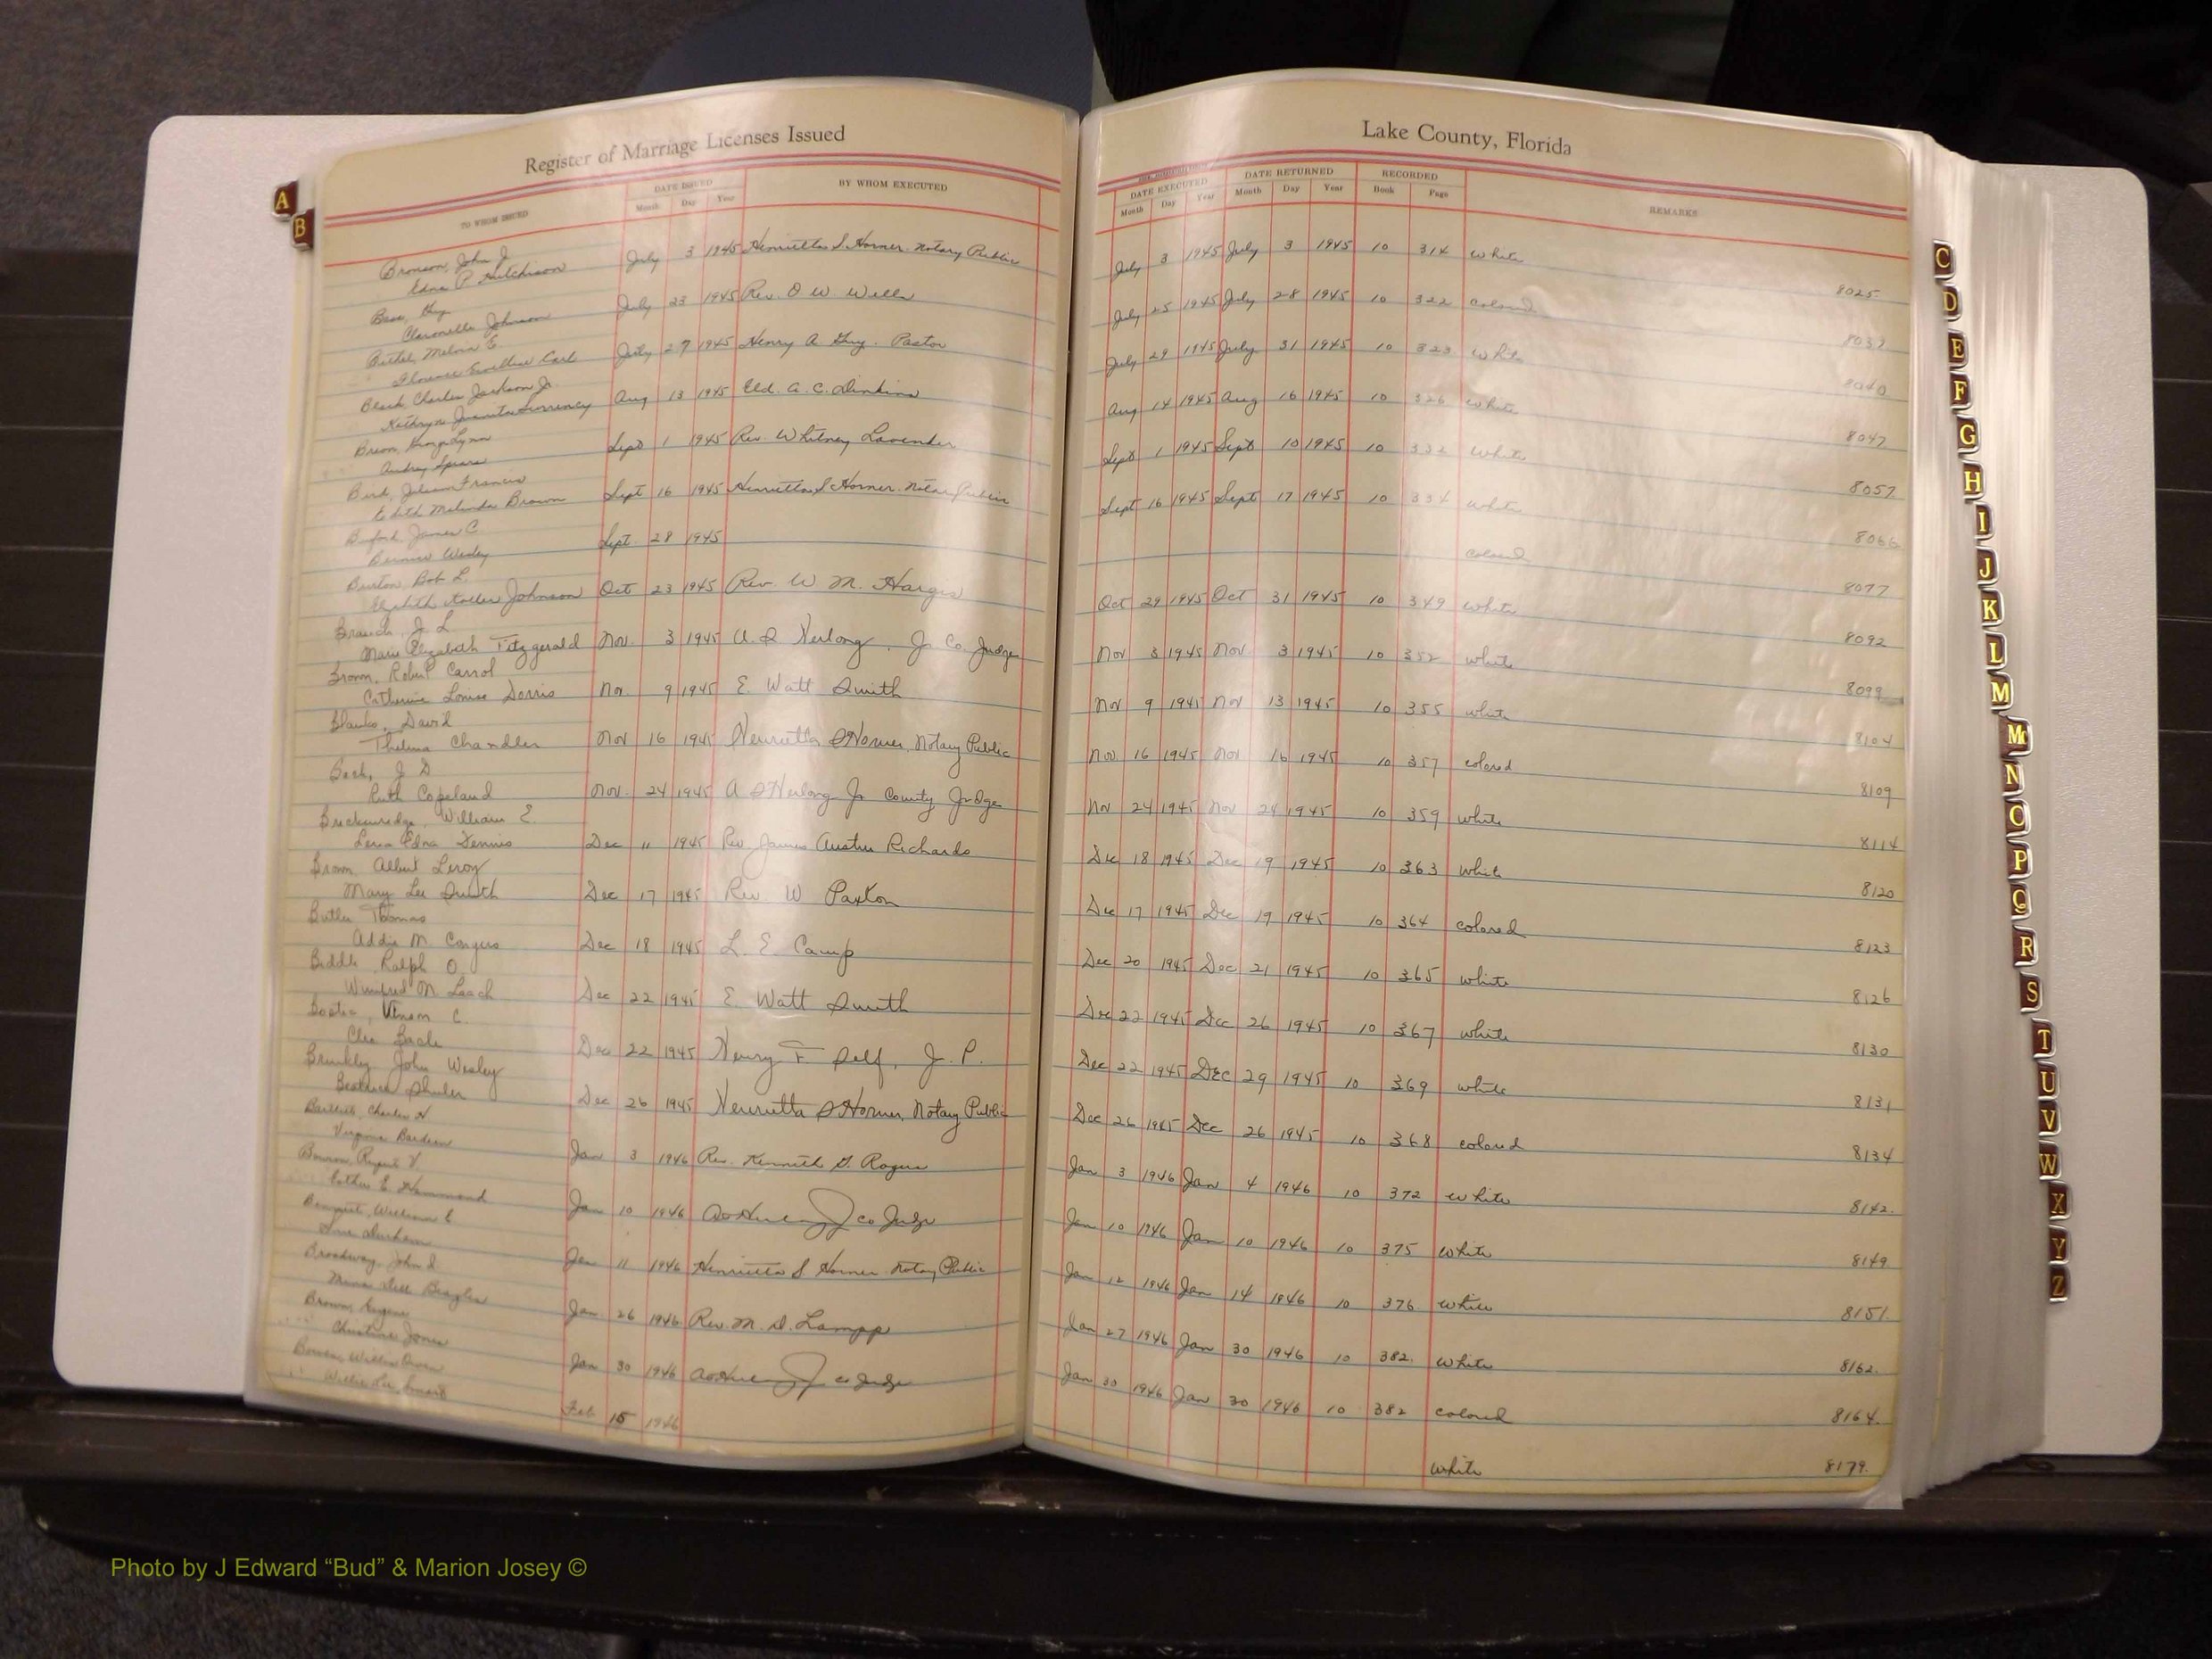 Register of Marriage Licenses Issued
Lake County, Florida
TO WHOM ISSUED DATE ISSUED Month Day Year BY WHOM EXECUTED DATE EXECUTED Month Day Year DATE RETURNED Month Day Year RECORDED Book Page REMARKS
Bronson, John J.
Edna P. Hutchison July 3 1945 Henrietta S. Horner. Notary Public July 3 1945 July 3 1945 10 314 White 8025
Bass,
Johnson July 23 1945 Rev. O. W. Wells July 25 1945 July 28 1945 10 322 Colored 8037
Bethel, Melvin E.
Florence Carl July 27 1945 Henry A. Guy. Pastor July 29 1945 July 31 1945 10 323 White 8040
Black, Charles Jackson Jr.
Kathryn Juanita Aug 13 1945 Eld. A. C. Dinkins Aug 14 1945 Aug 16 1945 10 326 White 8047
Lynn
Audrey Spears Sept 1 1945 Rev. Whitney Lavender Sept 1 1945 Sept 10 1945 10 332 White 8057
Bird, Francis
Edith Malinda Brown Sept 16 1945 Henrietta S Horner. Notary Public Sept 16 1945 Sept 17 1945 10 334 White 8066
James C.
Bernice Wesley Sept. 28 1945 Colored 8077
Burton, Bob L.
Johnson Oct 23 1945 Rev. W. M. Hargis Oct 29 1945 Oct 31 1945 10 349 White 8092
Branch, J. L.
Marie Elizabeth Fitzgerald Nov. 3 1945 A. S Herlong, Jr Co. Judge Nov 3 1945 Nov. 3 1945 10 352 White 8099
Brown, Robert Carrol
Catherine Louise Dorris Nov. 9 1945 E. Watt Smith Nov 9 1945 Nov 13 1945 10 355 white 8104
Blanks, David
Thelma Chandler Nov 16 1945 Henrietta S Horner, Notary Public Nov 16 1945 Nov 16 1945 10 357 colored 8109
J D
Ruth Copeland Nov. 24 1945 A S Herlong Jr County Judge Nov 24 1945 Nov 24 1945 10 359 white 8114
Breckenridge, William E.
Edna Dennis Dec 11 1945 Rev James Austin Richards Dec 18 1945 Dec 19 1945 10 363 white 8120
Brown Albert Leroy
Mary Lee Smith Dec 17 1945 Rev. W Paxton Dec 17 1945 Dec 19 1945 10 364 colored 8123
Butler Thomas
Addie M. Conyers Dec 18 1945 L. E. Camp Dec 20 1945 Dec 21 1945 10 365 white 8126
Biddle Ralph O.
Winifred M. Leach Dec 22 1945 E Watt Smith Dec 22 1945 Dec 26 1945 10 367 white 8130
C.
Cleo Dec 22 1945 Henry F Self, J. P. Dec 22 1945 Dec 29 1945 10 369 white 8131
Brinkley John Wesley
Beatrice Shuler Dec 26 1945 Henrietta S Horner, Notary Public Dec 26 1945 Dec 26 1945 10 368 colored 8134
Bartlett, Charles H
Virginia Jan 3 1946 Rev. Kenneth G. Rogers Jan 3 1946 Jan 4 1946 10 372 White 8142.
V.
Esther E. Hammond Jan 10 1946 Co Judge Jan 10 1946 Jan 10 1946 10 375 White 8149
William E
Durham Jan 11 1946 Henrietta S. Horner Notary Public Jan 12 1946 Jan 14 1946 10 376 White 8151.
Broadway, John D.
Dell Beagles Jan 26 1946 Rev. M. D. Lampp Jan 27 1946 Jan 30 1946 10 382. White 8162.
Brown, Eugene
Christine Jones Jan 30 1946 Co Judge Jan 30 1946 Jan 30 1946 10 382 Colored 8164.
Owen
Willie Lee Feb 15 1946 White 8179.
A
B
C
D
E
F
G
H
I
J
K
L
M
Mc
N
O
P
Q
R
S
T
U
V
W
X
Y
Z
Photo by J Edward “Bud” & Marion Josey ©